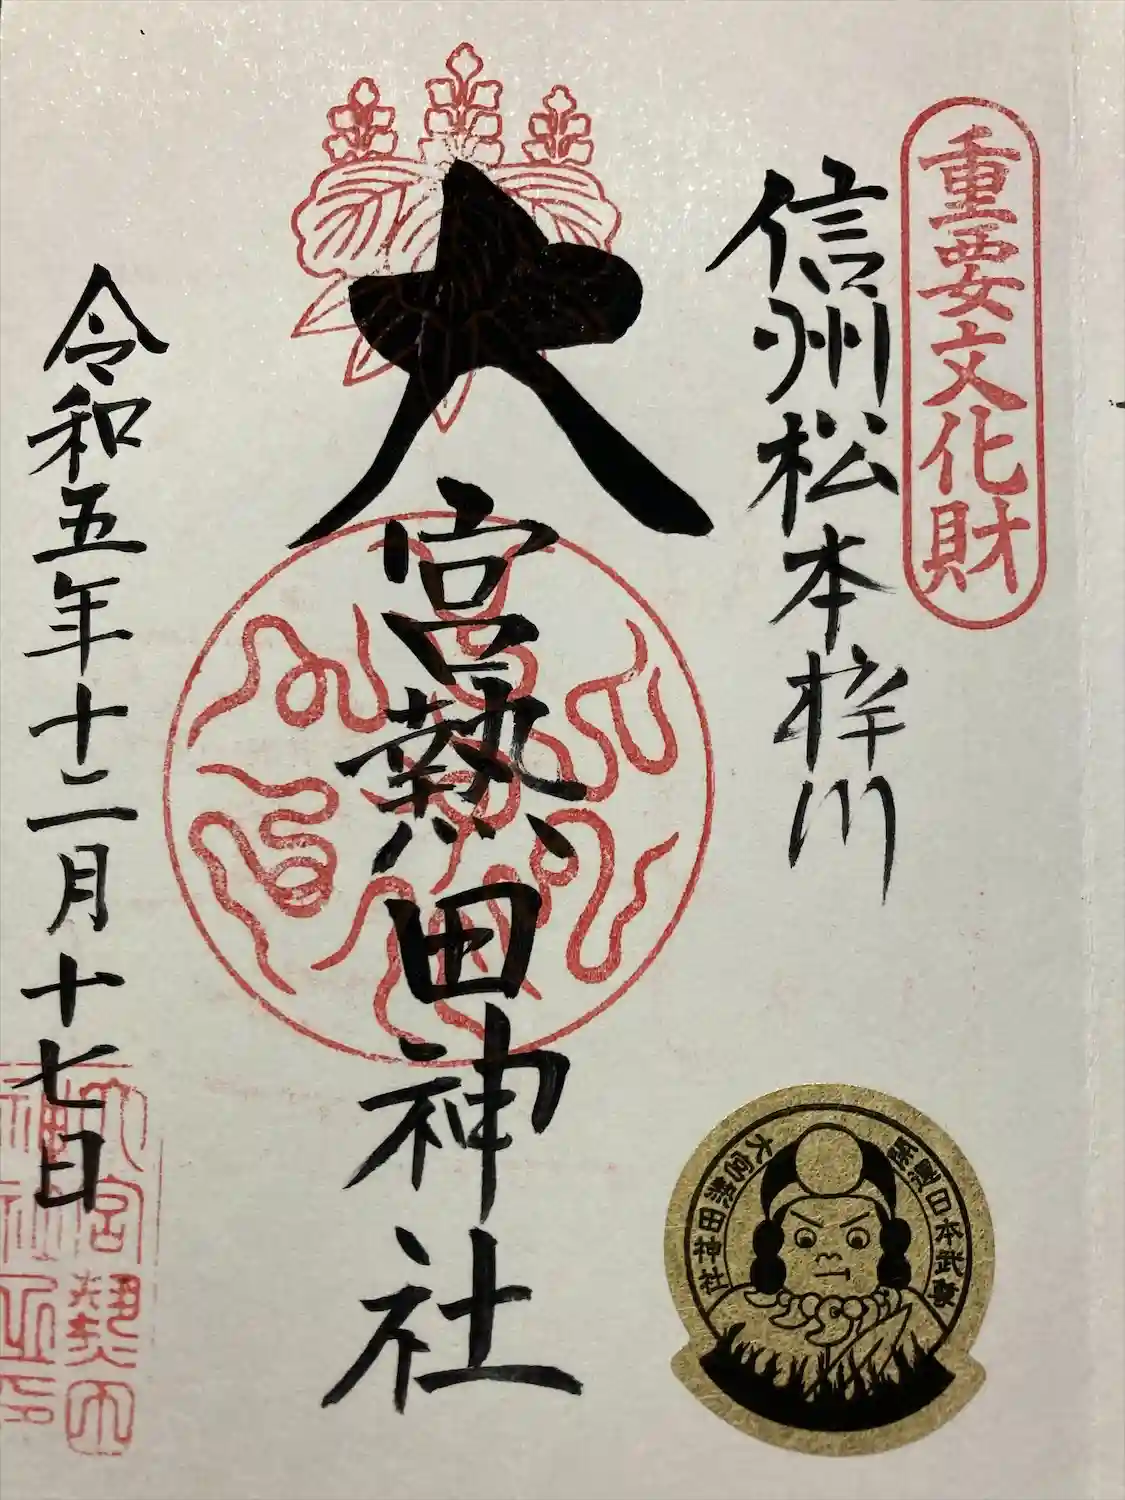 重要文化財
信州松本梓川
大宮熱田神社
令和五年十二月十七日
大宮熱田神社
日本武尊